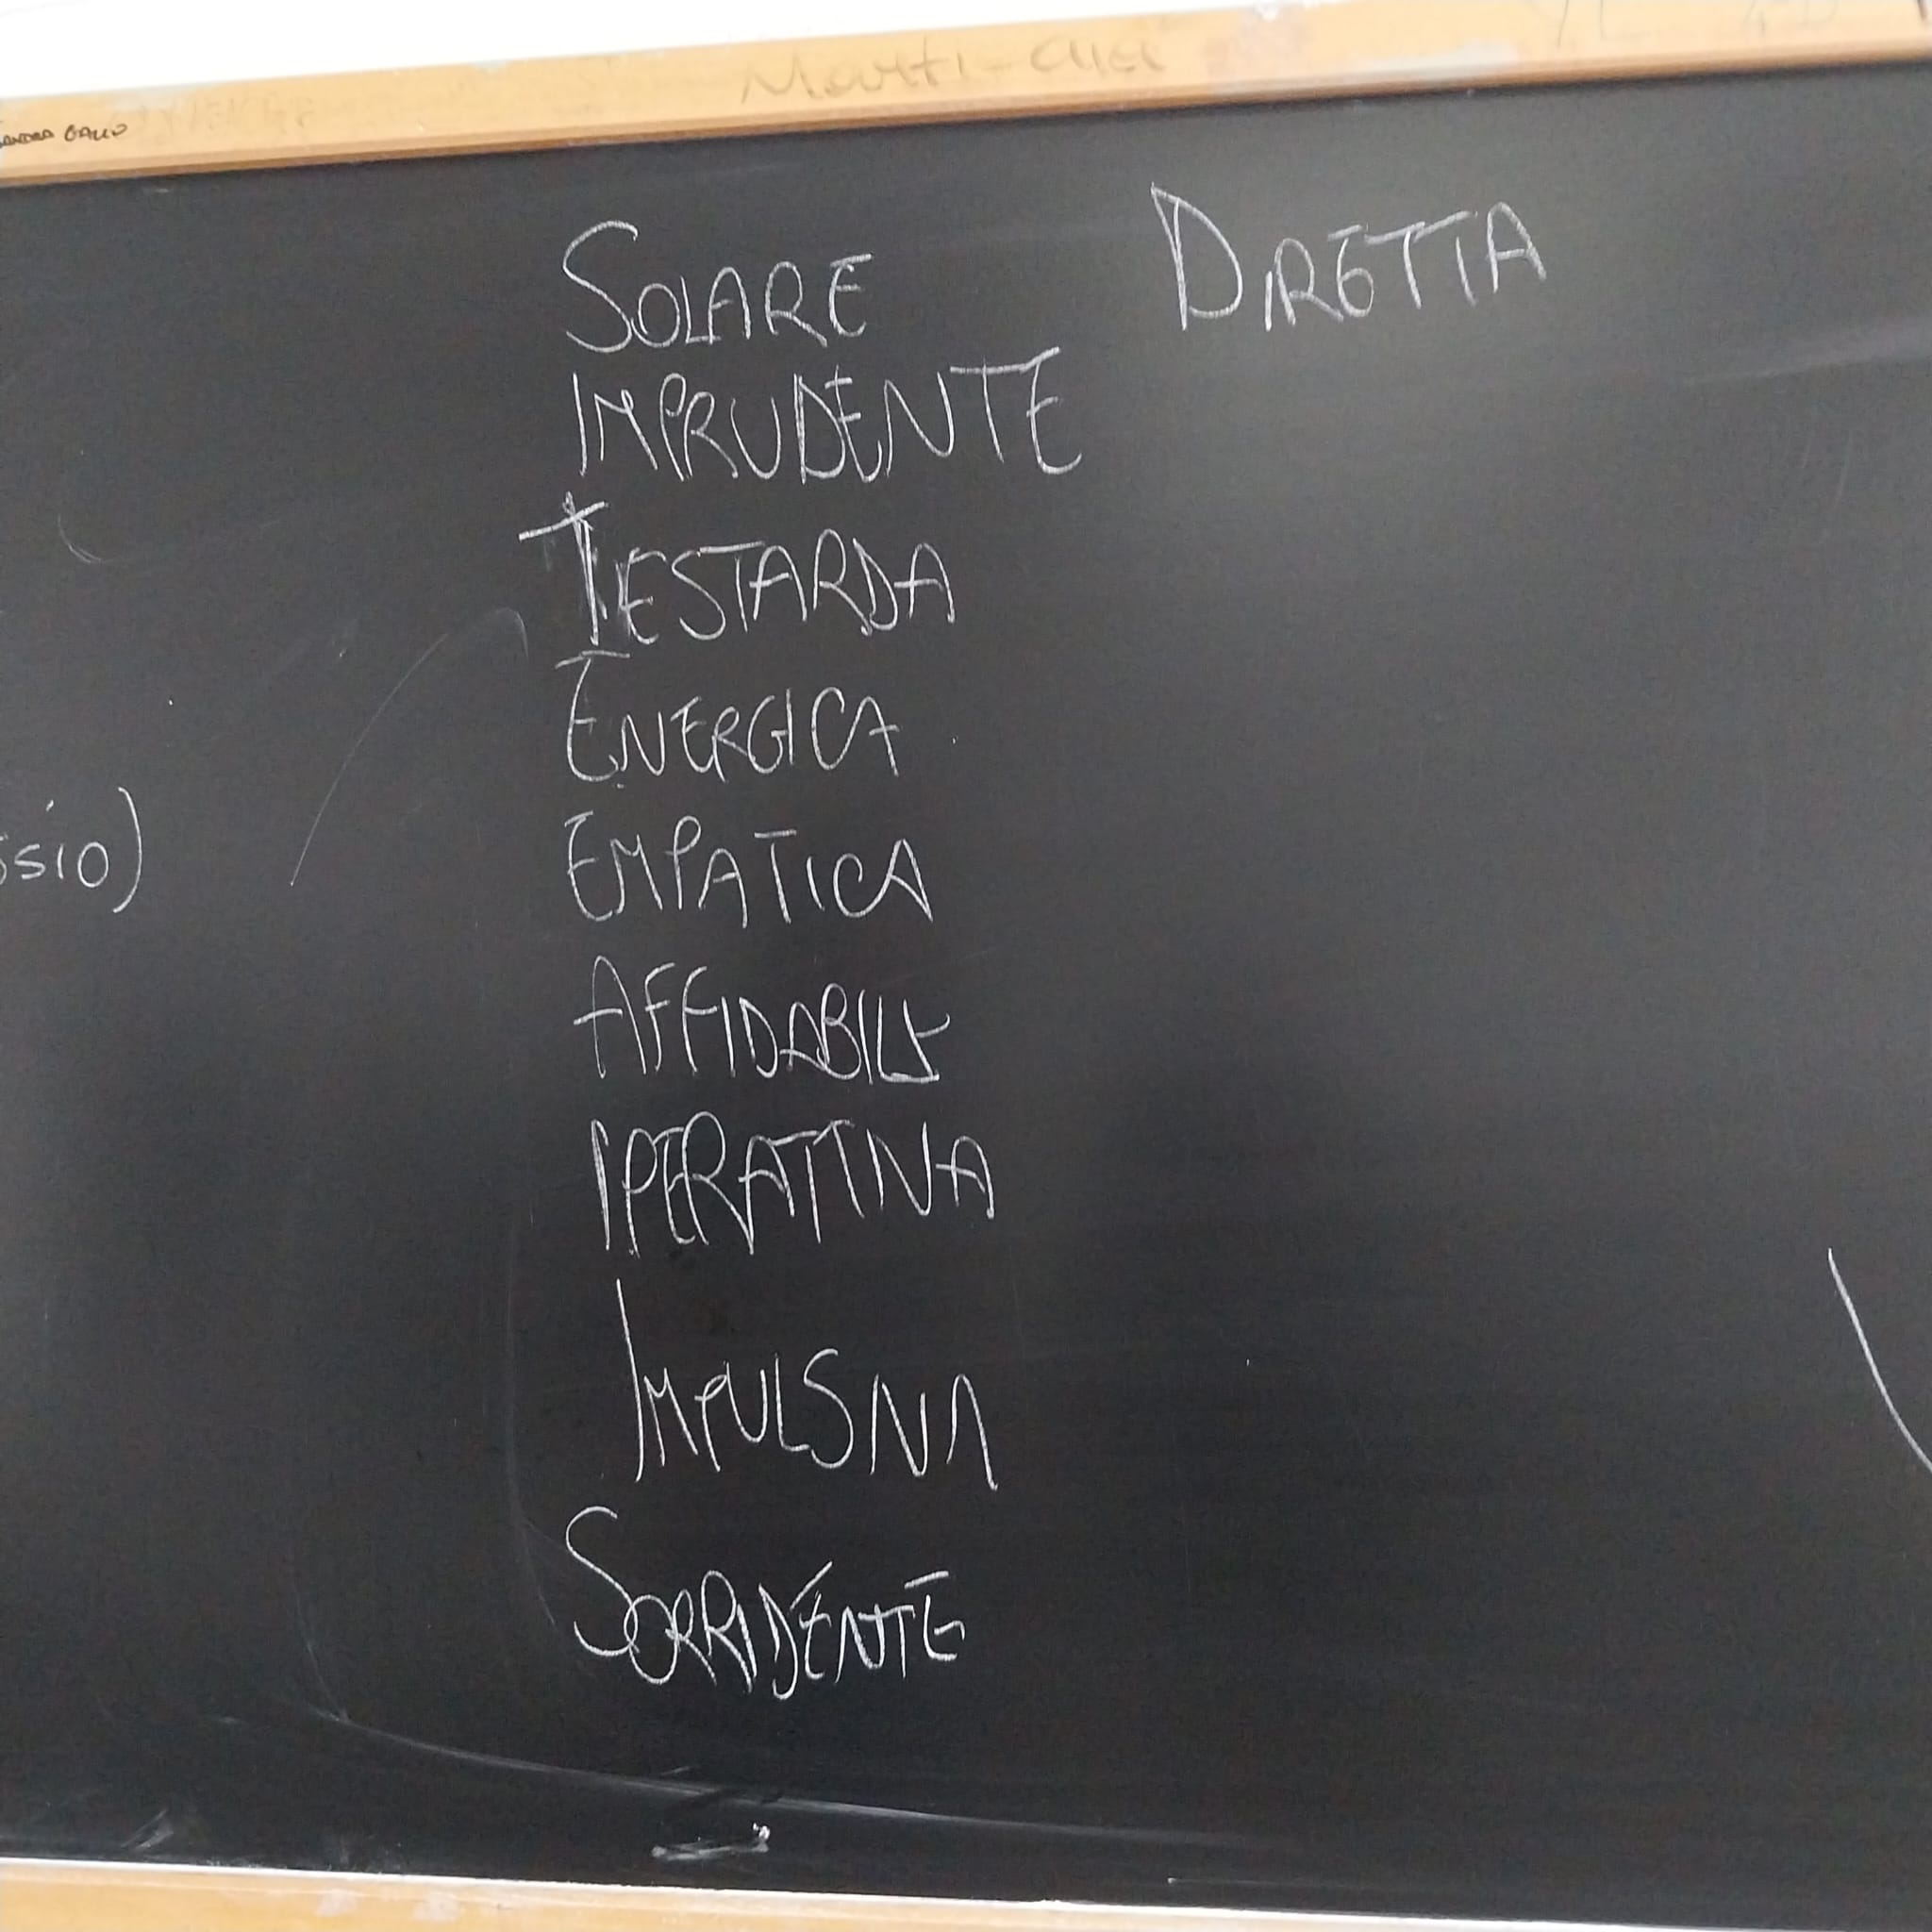 Marti-
GALLO
SOLARE DIRETTA
IMPRUDENTE
TESTARDA
ENERGICA
EMPATICA
SSIO)
AFFIDABILE
IPERATTIVA
IMPULSIVA
SORRIDENTE